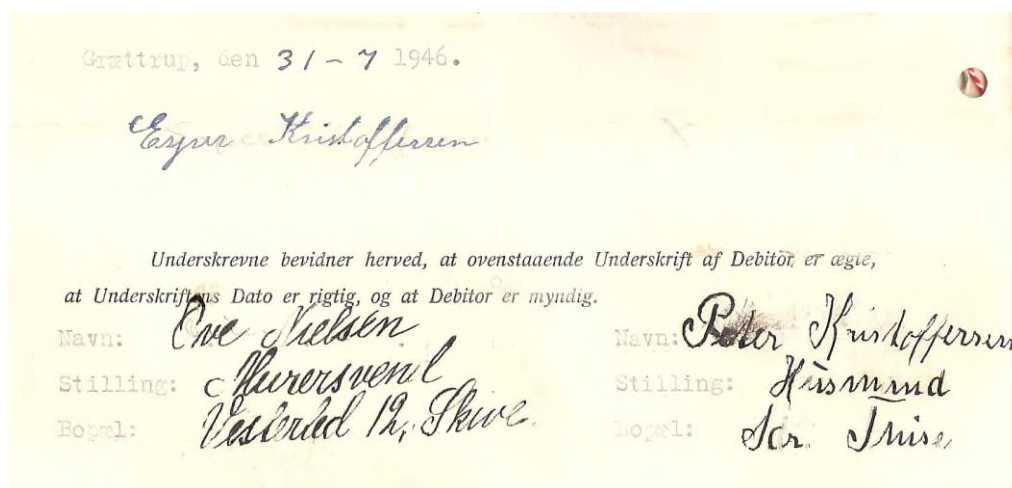 Grættrup, den 31-7 1946.
Esper Kristoffersen
Underskrevne bevidner herved, at ovenstaaende Underskrift af Debitor er ægte,
at Underskriftens Dato er rigtig, og at Debitor er myndig.
Navn: Ove Nielsen
Stilling: Murersvend
Bopæl: Vesterled 12, Skive.
Navn: Peter Kristoffersen
Stilling: Husmand
Bopæl: Sdr. Thise